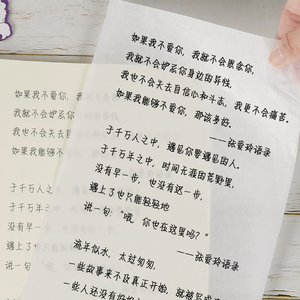 如果我不爱你，我就不会思念你，
我就不会妒忌你身边的异性，
我也不会失去自信心和斗志，我更不会痛苦。
如果我能够不爱你，那该多好。
——张爱玲语录
于千万人之中，遇见你要遇见的人。
于千万年之中，时间无涯的荒野里，
没有早一步，也没有迟一步，
遇上了也只能轻轻地
说一句：“哦，你也在这里吗？”
——张爱玲语录
流年似水，太过匆匆，
一些故事来不及真正开始，就被写成了
一些人还没有
如果我不爱你，我
我就不会妒忌你
我也不会失去自
如果我能够不
于千万人之中，遇
于千万年之中
没有早一步，
遇上了也
说一句